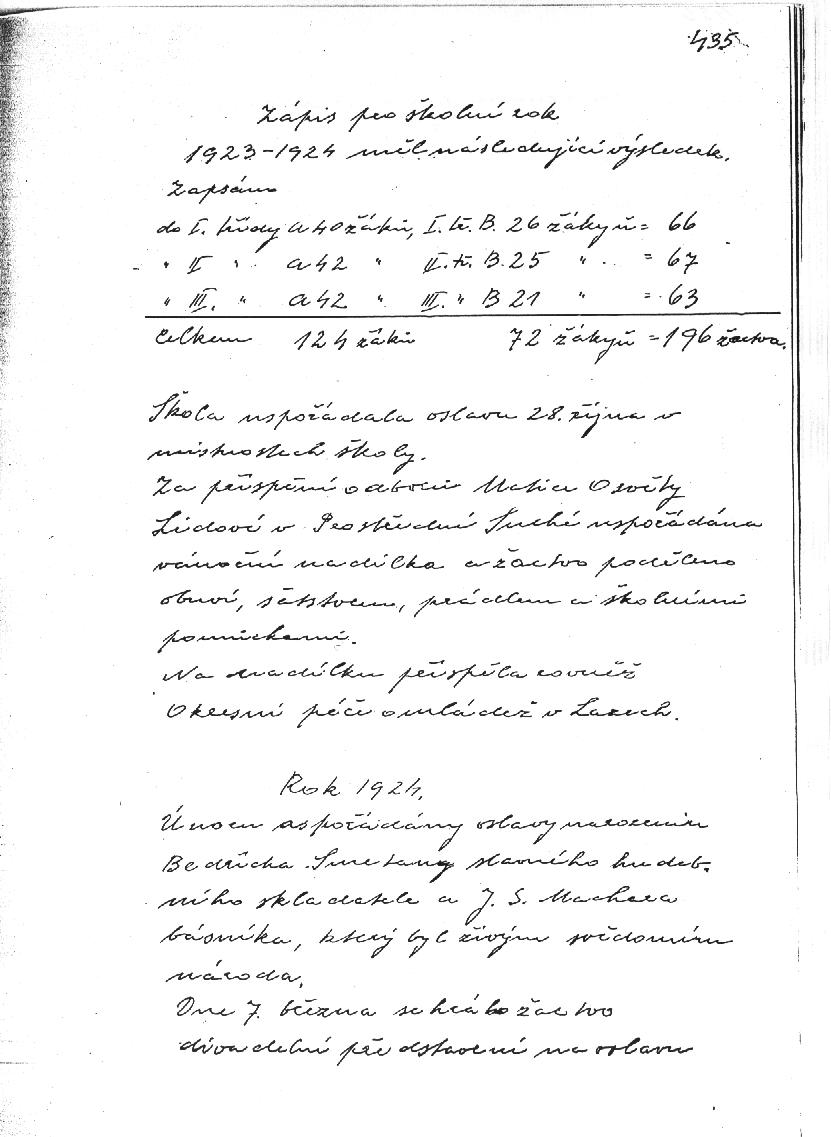 435
Zápis pro školní rok
1923-1924 měl následující výsledek.
Zapsáno
do I. třídy A 40 žáků, I. tř. B. 26 žákyň = 66
" II " . A 42 " II. tř. B. 25 " .. = 67
" III. " A 42 " III. " B 21 " = 63
Celkem 124 žáků 72 žákyň = 196 žactva.
Škola uspořádala oslavu 28. října v
místnostech školy.
Za přispění odboru Matice Osvěty
Lidové v Prostřední Suché uspořádána
vánoční nadílka a žactvo poděleno
obuví, šatstvem, prádlem a školními
pomůckami.
Na nadílku přispěla rovněž
Okresní péče o mládež v Lazech.
Rok 1924.
Únoru uspořádány oslavy narozenin
Bedřicha Smetany slavného hudeb-
ního skladatele a J. S. Machara
básníka, který byl živým svědomím
národa.
Dne 7. března sehrálo žactvo
divadelní představení na oslavu